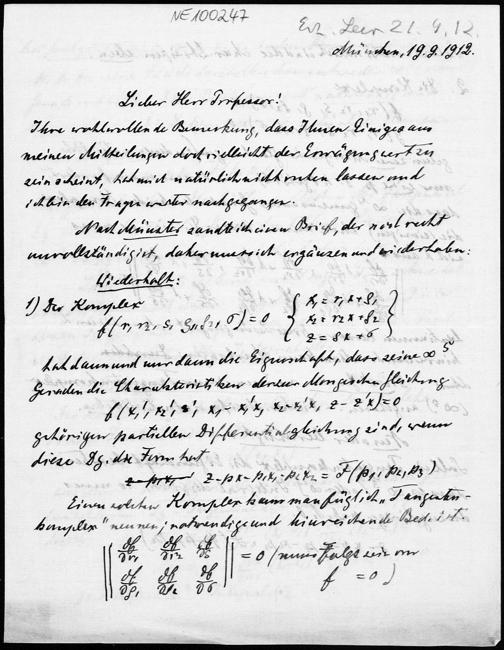 NE100247
21. 9. 12.
München, 19.9.1912.
Lieber Herr Professor!
Ihre wohlwollende Bemerkung, dass Ihnen Einiges aus
meinen Mitteilungen doch vielleicht der Erwägung wert zu
sein scheint, hat mich natürlich nicht ruhen lassen und
ich bin den Fragen weiter nachgegangen.
Nach Münster sandte ich einen Brief, der noch recht
unvollständig ist, daher muss ich ergänzen und wiederholen:
Wiederholt:
1) Der Komplex
f(r₁, r₂, s, ϱ₁, ϱ₂, σ) = 0 { x₁ = r₁x + ϱ₁
x₂ = r₂x + ϱ₂
z = sx + σ }
hat dann und nur dann die Eigenschaft, dass seine ∞⁵
Geraden die Charakteristiken der zur Mongeschen Gleichung
f(x₁', x₂', z', x₁ - x₁'x, x₂ - x₂'x, z - z'x) = 0
gehörigen partiellen Differentialgleichung sind, wenn
diese Dg. die Form hat
z - px - p₁x₁ - p₂x₂ = F(p, p₁, p₂)
Einen solchen Komplex kann man füglich „Tangenten-
komplex" nennen; notwendige und hinreichende Bedingt.
|| ∂f/∂r₁ ∂f/∂r₂ ∂f/∂s || = 0 (
∂f/∂ϱ₁ ∂f/∂ϱ₂ ∂f/∂σ
f = 0)